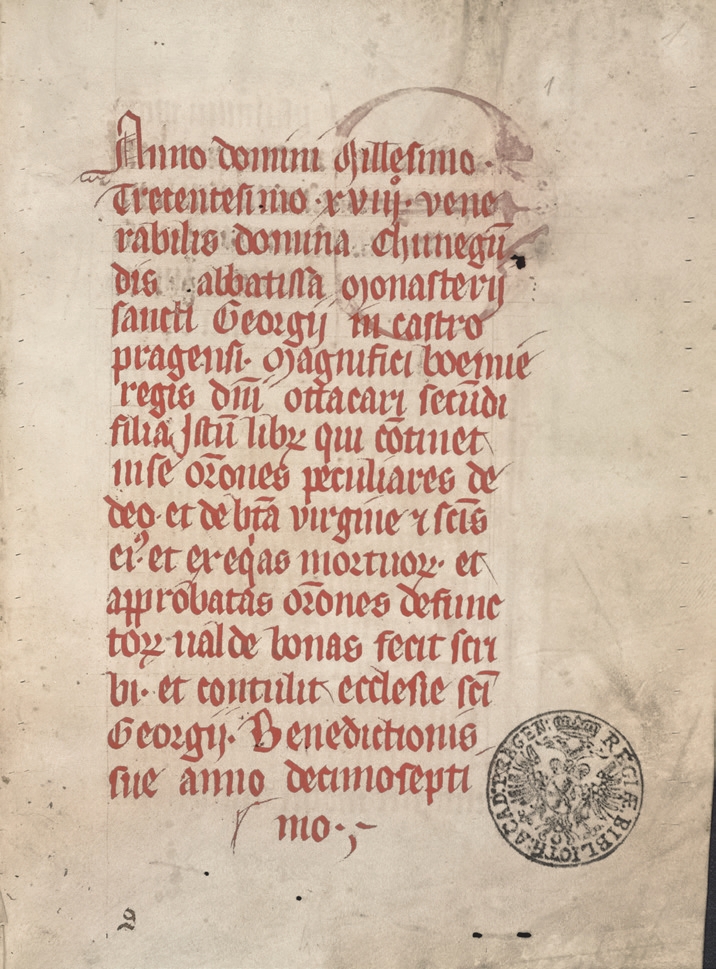 Anno domini Millesimo ·
Trecentesimo · xviij° · vene
rabilis domina Chunegū
dis abbatissa Monasterij
sancti Georgij in castro
pragensi · Magnifici boemie
regis dn̄i ottacari secūdi
filia Jstū libꝝ qui cōtinet
in se or̄ones peculiares de
deo · et de btā virgine ⁊ scīs
eiꝰ · et exeqͥas mortuoꝝ · et
approbatas or̄ones defunc
toꝝ ualde bonas fecit scri
bi · et contulit ecclesie scī
Georgij · Benedictionis
sue anno decimosepti
mo · ;-
REGIÆ BIBLIOTH: ACAD: PRAGEN:
1
1